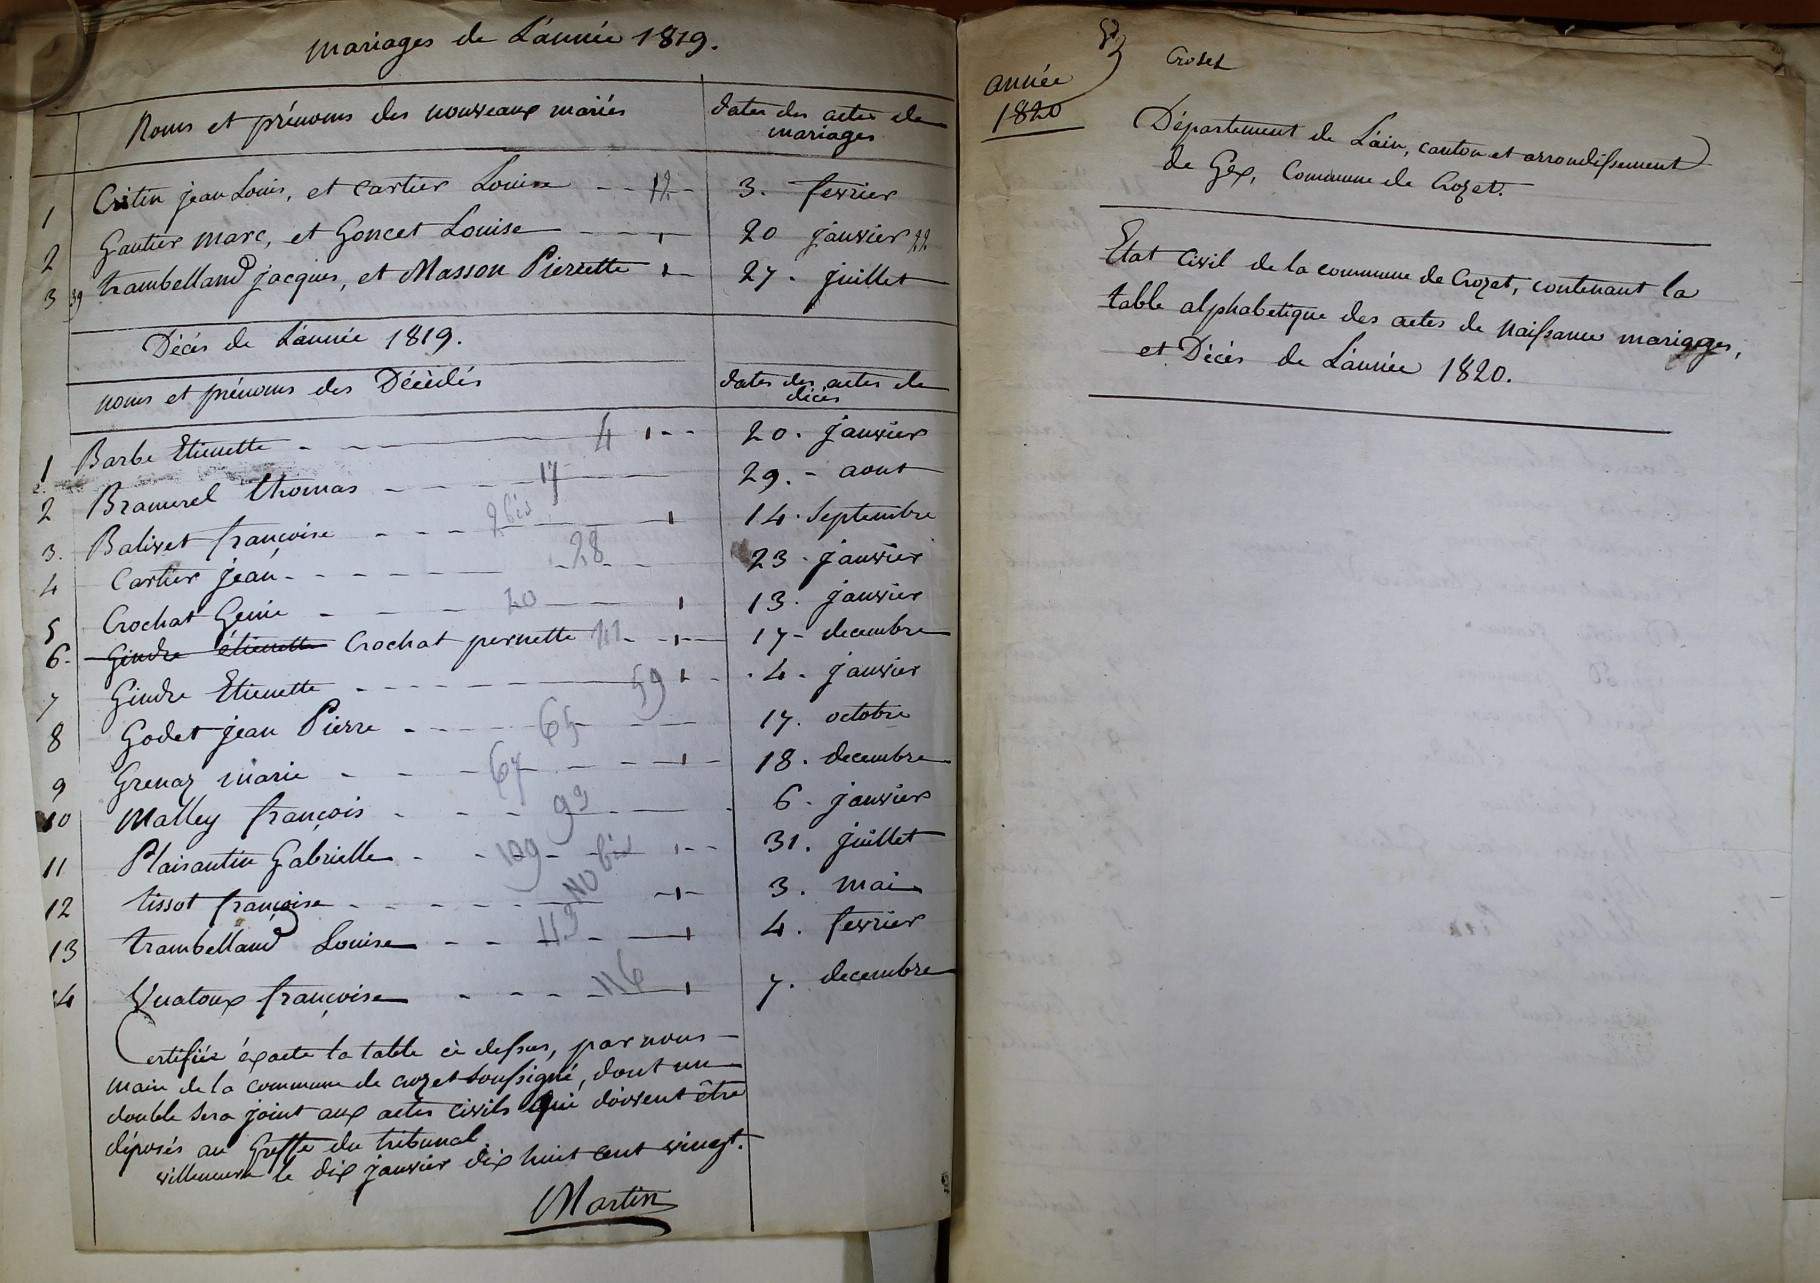 Mariages de L'année 1819.
Noms et prénoms des nouveaux mariés
dates des actes de
mariages
1 Critin jean Louis, et Cartier Louise 12 3. fevrier
2 Gautier Marc, et Goncet Louise 20 janvier 22
3 39 trambelland jacques, et Masson Pierrette 27. juillet
Décés de L'année 1819.
noms et prénoms des Décédés
dates des actes de
décés
1 Barbe Etienette 4 20. janvier
2 Bramerel thomas 17 29. aout
3. Balivet françoise 2 bis 14. Septembre
4 Cartier jean 28 23. janvier
5 Crochat Genie 20 13. janvier
6. Gindre étienette Crochat pernette 41 17 decembre
7 Gindre Etienette 59 4. janvier
8 Godet jean Pierre 65 17. octobre
9 Grenaz marie 67 18. decembre
10 Malley françois 99 6. janvier
11 Plaisantin Gabrielle 109 31. juillet
12 tissot françoise 110 bis 3. mai
13 trambelland Louise 113 4. fevrier
14 Vuatoux françoise 116 7. decembre
Certifiée éxacte la table ci dessus, par nous
maire de la commune de crozet soussigné, dont un
double sera joint aux actes civils qui doivent être
déposés au Greffe du tribunal.
villeneuve le dix janvier dix huit cent vingt.
Martin
année
1820
Crozet
Département de L'ain, canton et arrondissement
de Gex, Commune de Crozet.
Etat Civil de la commune de Crozet, contenant la
table alphabetique des actes de naissance mariages,
et Décés de L'année 1820.